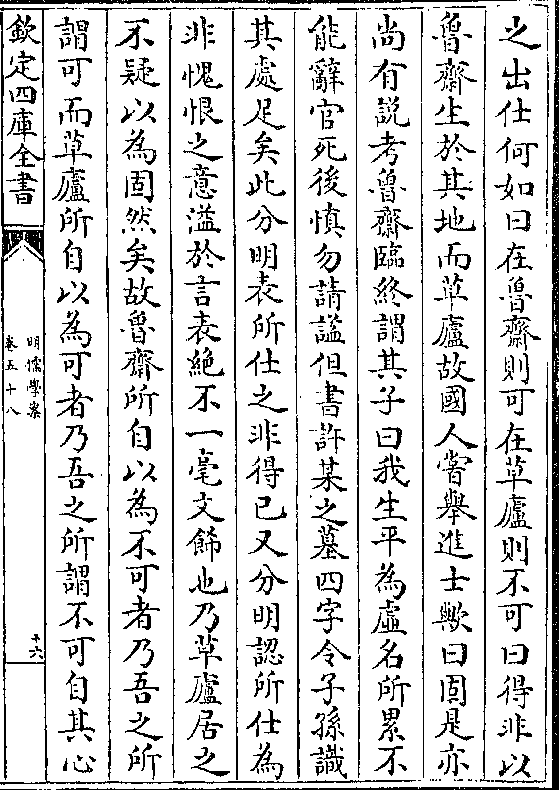 之出仕何如曰在魯齋則可在草廬則不可曰得非以
魯齋生於其地而草廬故國人嘗舉進士歟曰固是亦
尚有説考魯齋臨終謂其子曰我生平為虛名所累不
能辭官死後慎勿請謚但書許某之墓四字令子孫識
其處足矣此分明表所仕之非得已又分明認所仕為
非愧恨之意溢於言表絶不一毫文飾也乃草廬居之
不疑以為固然矣故魯齋所自以為不可者乃吾之所
謂可而草廬所自以為可者乃吾之所謂不可自其心
欽定四庫全書
明儒學案
卷五十八
十六